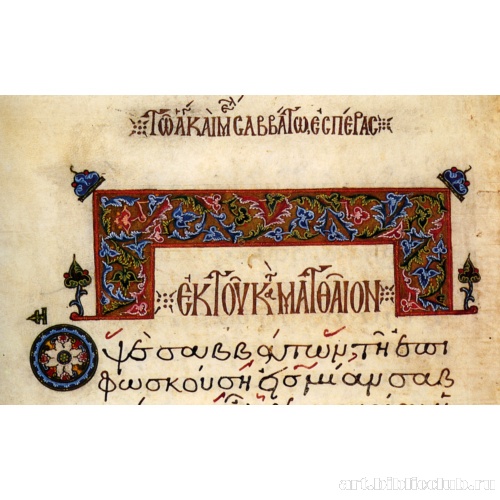 Τῶ ἁγ καὶ μ σαββάτω ἑσπέρας
ἐκ τοῦ κτ ματθαῖον
Ὀψὲ σαββάτων, τῆ ἐπι
φωσκούσῃ εἰς μίαν σαβ
art.biblioclub.ru